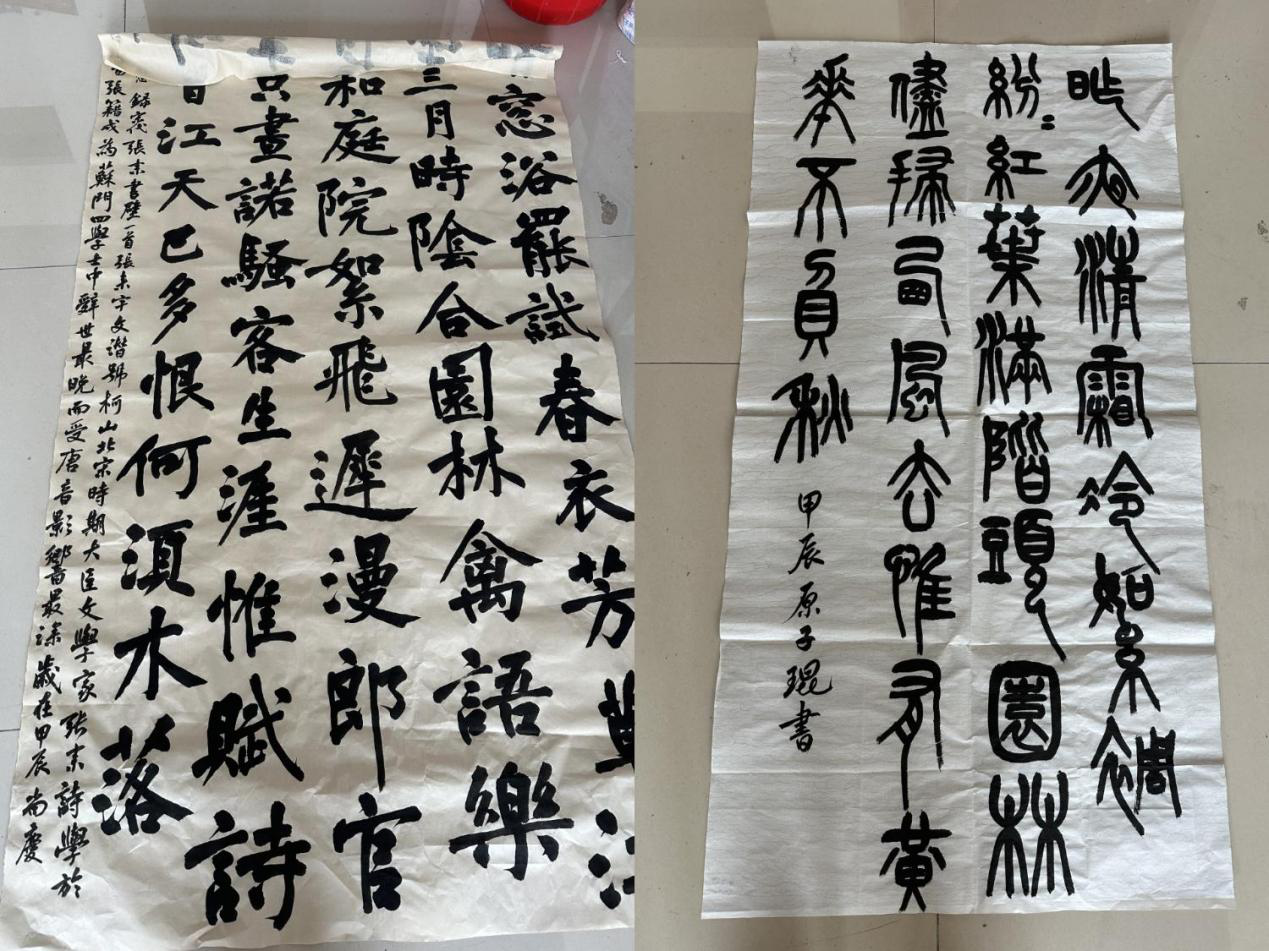 窓浴罷試春衣芳
三月時陰合園林禽語樂
和庭院絮飛遲漫郎官
只畫諾騷客生涯惟賦詩
江天已多恨何須木落
錄宋張耒書壁一首張耒字文潛號柯山北宋時期大臣文學家張耒詩學於
張籍或為蘇門四學士中辭世最晚而受唐音影響最深歲在甲辰尚慶
昨夜清霜冷絮裯
紛〻紅葉滿階頭園林
儘掃西風去惟有黃
華不負秋
甲辰原子琨書